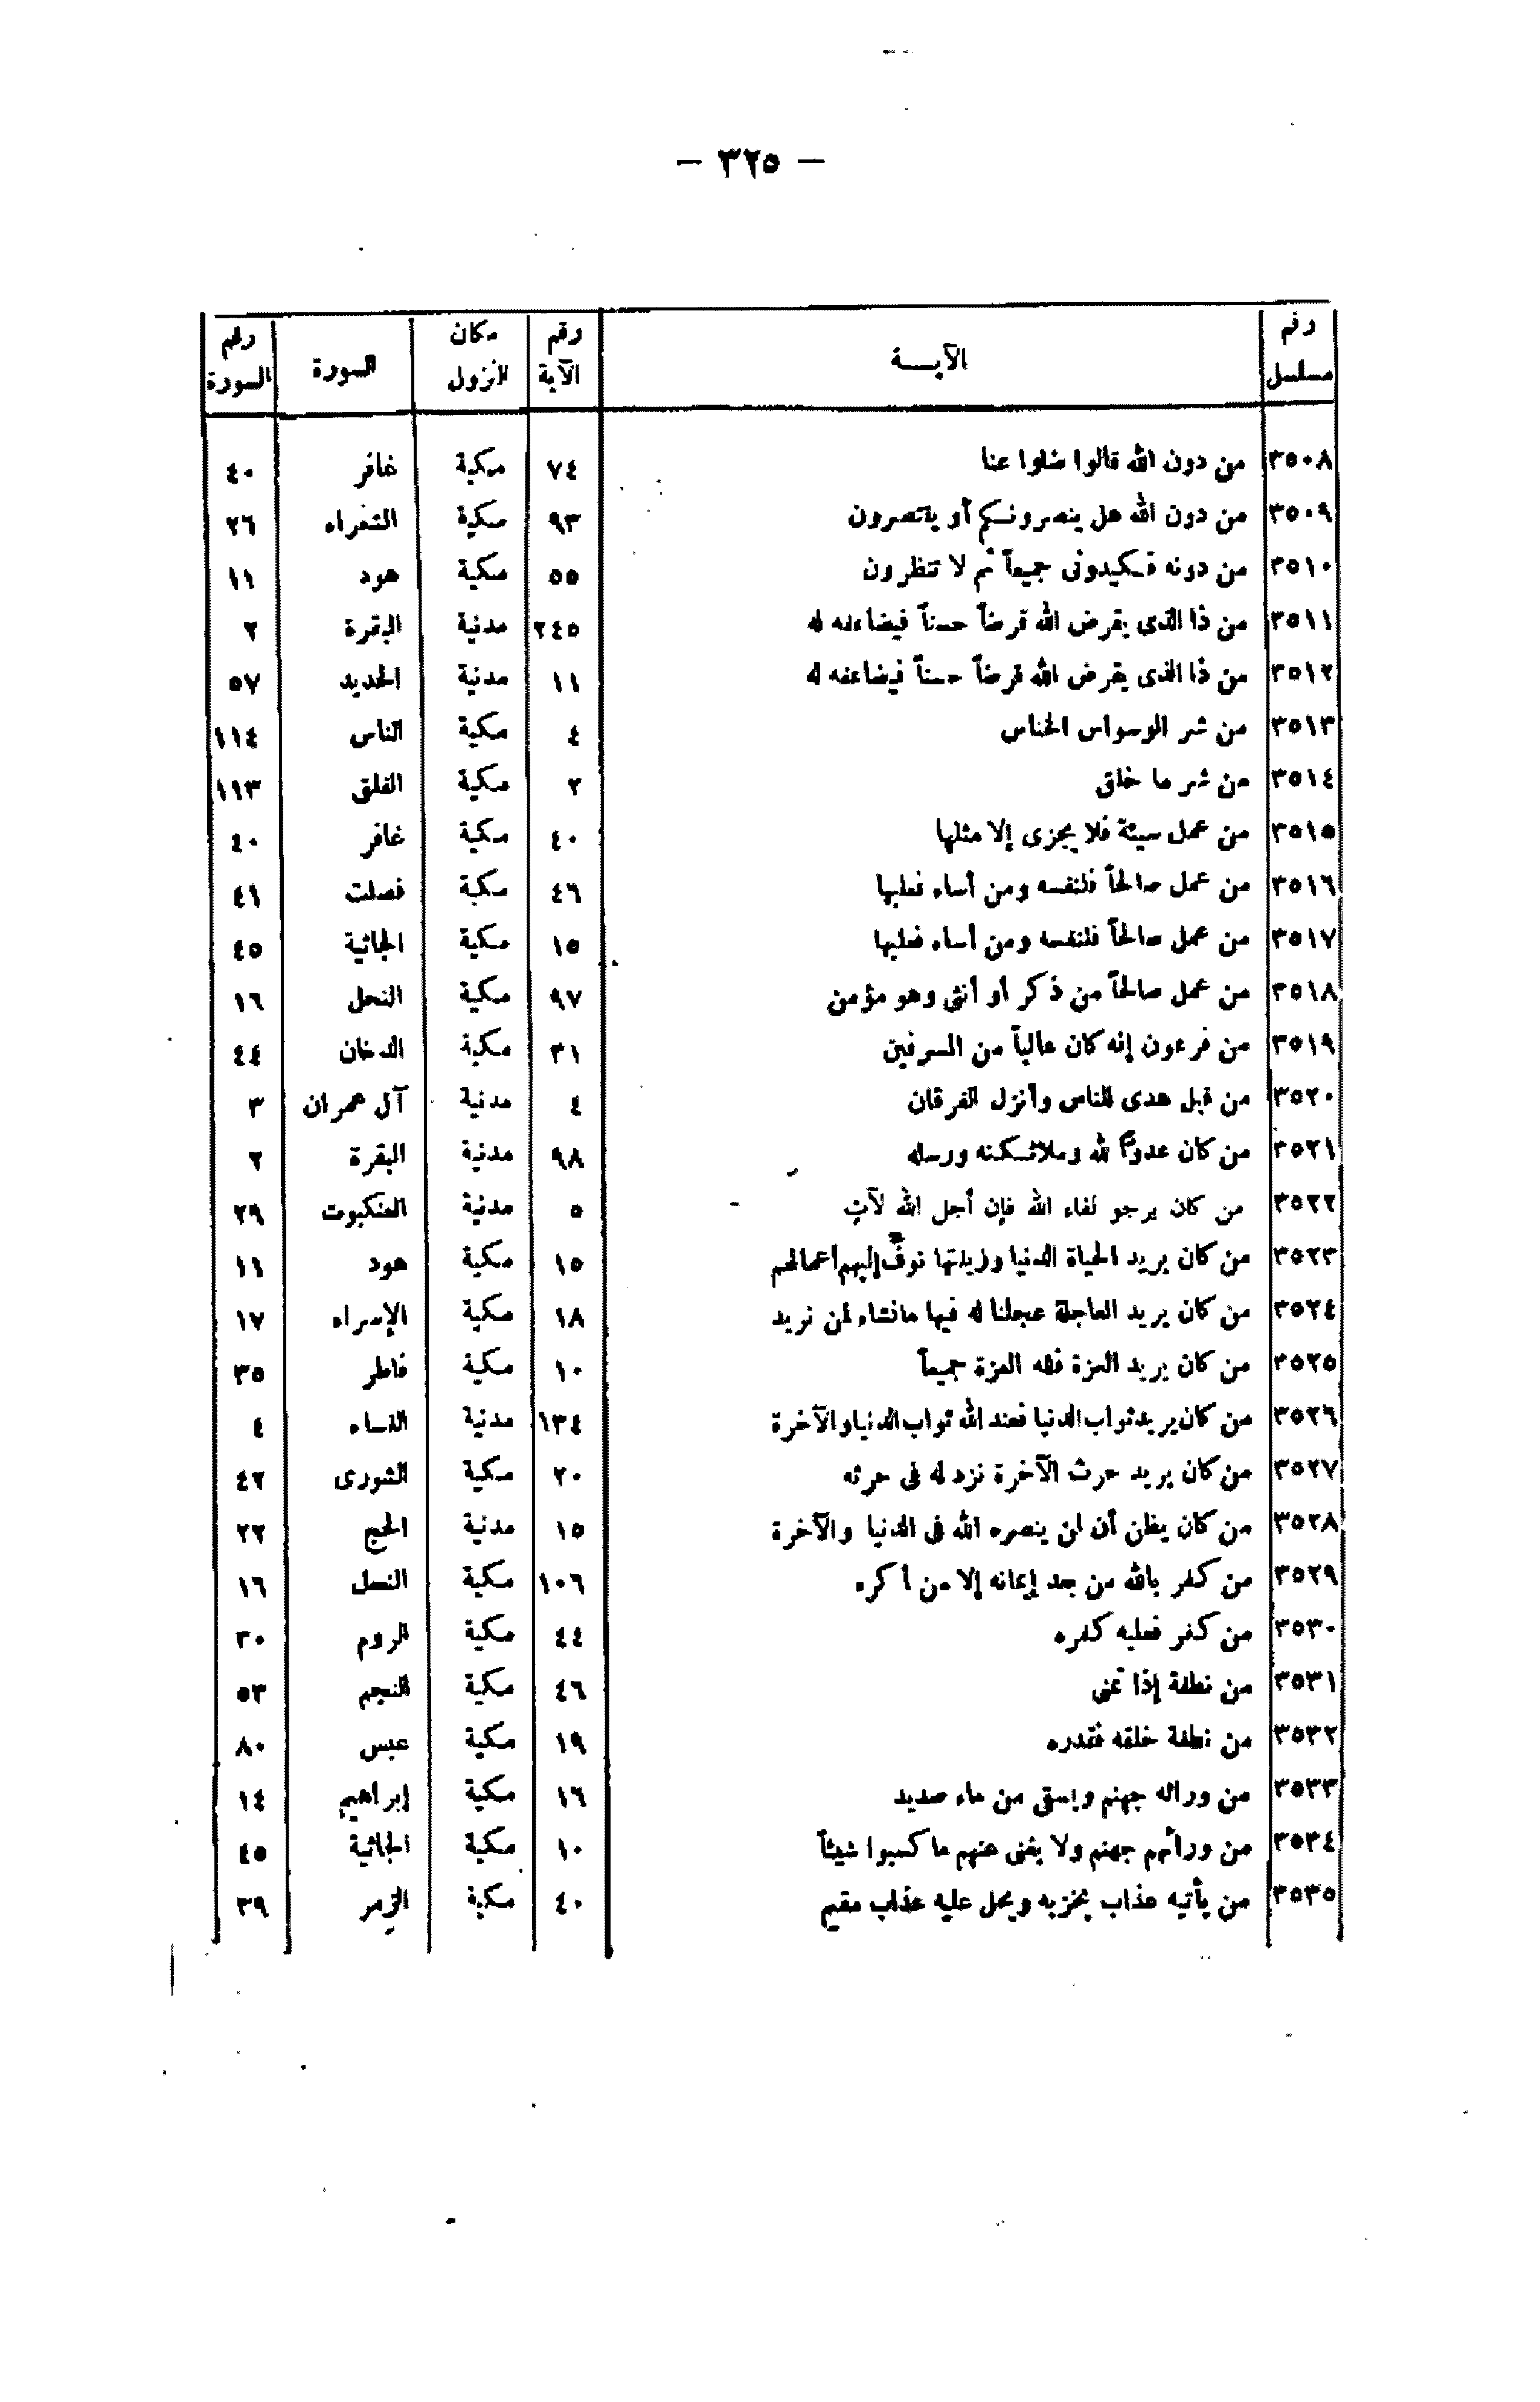 — ٣٢٥ —
رقم مسلسل	الآيـــة	رقم الآية	مكان النزول	السورة	رقم السورة
٣٥٠٨	من دون الله قالوا ضلوا عنا	٧٤	مكية	غافر	٤٠
٣٥٠٩	من دون الله هل ينصرونكم أو ينتصرون	٩٣	مكية	الشعراء	٢٦
٣٥١٠	من دونه فكيدونى جميعاً ثم لا تنظرون	٥٥	مكية	هود	١١
٣٥١١	من ذا الذى يقرض الله قرضاً حسناً فيضاعفه له	٢٤٥	مدنية	البقرة	٢
٣٥١٢	من ذا الذى يقرض الله قرضاً حسناً فيضاعفه له	١١	مدنية	الحديد	٥٧
٣٥١٣	من شر الوسواس الخناس	٤	مكية	الناس	١١٤
٣٥١٤	من شر ما خلق	٢	مكية	الفلق	١١٣
٣٥١٥	من عمل سيئة فلا يجزى إلا مثلها	٤٠	مكية	غافر	٤٠
٣٥١٦	من عمل صالحاً فلنفسه ومن أساء فعليها	٤٦	مكية	فصلت	٤١
٣٥١٧	من عمل صالحاً فلنفسه ومن أساء فعليها	١٥	مكية	الجاثية	٤٥
٣٥١٨	من عمل صالحاً من ذكر أو أنثى وهو مؤمن	٩٧	مكية	النحل	١٦
٣٥١٩	من فرعون إنه كان عالياً من المسرفين	٣١	مكية	الدخان	٤٤
٣٥٢٠	من قبل هدى للناس وأنزل الفرقان	٤	مدنية	آل عمران	٣
٣٥٢١	من كان عدوًّا لله وملائكته ورسله	٩٨	مدنية	البقرة	٢
٣٥٢٢	من كان يرجو لقاء الله فإن أجل الله لآتٍ	٥	مدنية	العنكبوت	٢٩
٣٥٢٣	من كان يريد الحياة الدنيا وزينتها نوفِّ إليهم أعمالهم	١٥	مكية	هود	١١
٣٥٢٤	من كان يريد العاجلة عجلنا له فيها مانشاء لمن نريد	١٨	مكية	الإسراء	١٧
٣٥٢٥	من كان يريد العزة فلله العزة جميعاً	١٠	مكية	فاطر	٣٥
٣٥٢٦	من كان يريد ثواب الدنيا فعند الله ثواب الدنيا والآخرة	١٣٤	مدنية	النساء	٤
٣٥٢٧	من كان يريد حرث الآخرة نزد له فى حرثه	٢٠	مكية	الشورى	٤٢
٣٥٢٨	من كان يظن أن لن ينصره الله فى الدنيا والآخرة	١٥	مدنية	الحج	٢٢
٣٥٢٩	من كفر بالله من بعد إيمانه إلا من أكره	١٠٦	مكية	النحل	١٦
٣٥٣٠	من كفر فعليه كفره	٤٤	مكية	الروم	٣٠
٣٥٣١	من نطفة إذا تمنى	٤٦	مكية	النجم	٥٣
٣٥٣٢	من نطفة خلقه فقدره	١٩	مكية	عبس	٨٠
٣٥٣٣	من ورائه جهنم ويسقى من ماء صديد	١٦	مكية	إبراهيم	١٤
٣٥٣٤	من ورائهم جهنم ولا يغنى عنهم ما كسبوا شيئاً	١٠	مكية	الجاثية	٤٥
٣٥٣٥	من يأتيه عذاب يخزيه ويحل عليه عذاب مقيم	٤٠	مكية	الزمر	٣٩